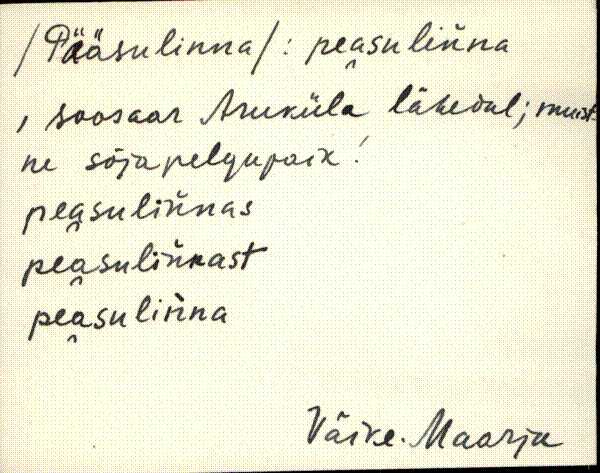 /Pääsulinna/: pea̭suliňna
, soosaar Aruküla lähedal; muist-
ne sõjapelgupaik!
pea̭suliňnas
pea̭suliňnast
pea̭suliňna
Väike-Maarja